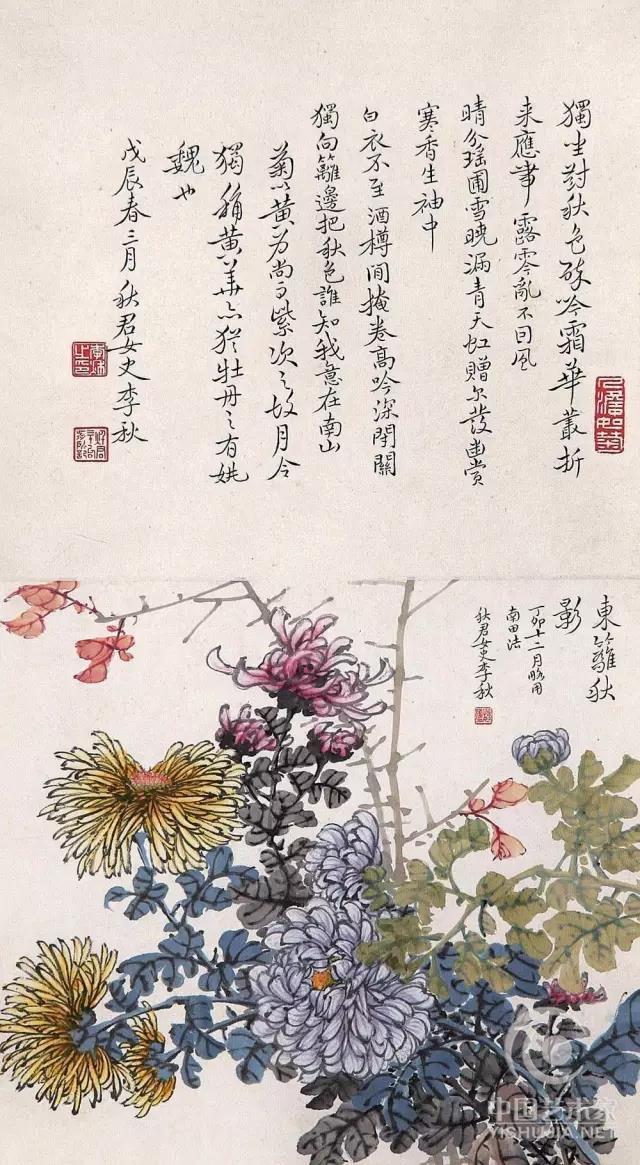 獨坐對秋色酔吟霜華叢折
来應帯露零亂不因風
晴分瑶圃雪曉漏青天虹贈尔發幽賞
寒香生袖中
白衣不至酒樽间掩卷高吟深閉關
獨向籬邊把秋色誰知我意在南山
菊以黄为尚而紫次之故月令
獨稱黄華亦猶牡丹之有姚
魏也
戊辰春三月秋君女史李秋
人澹如菊
東籬秋
影
丁卯十二月略用
南田法
秋君女史李秋
中国艺术家
YISHUJIA.NET